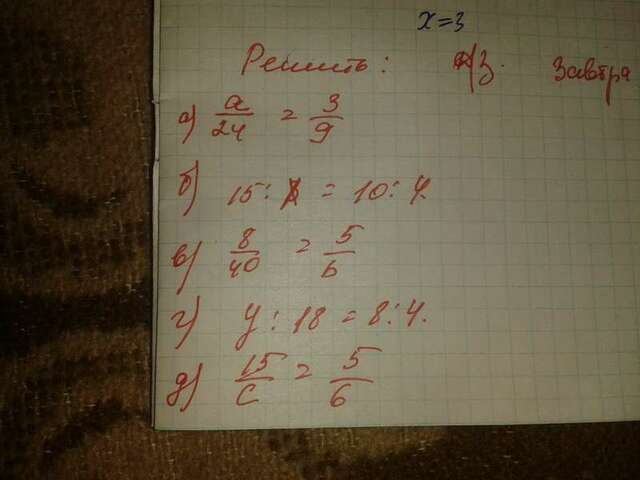 x=3
Решить: д/з. Завтра
а) a/24 = 3/9
б) 15: = 10:4.
в) 8/40 = 5/b
г) y:18=8:4.
д) 15/c = 5/6